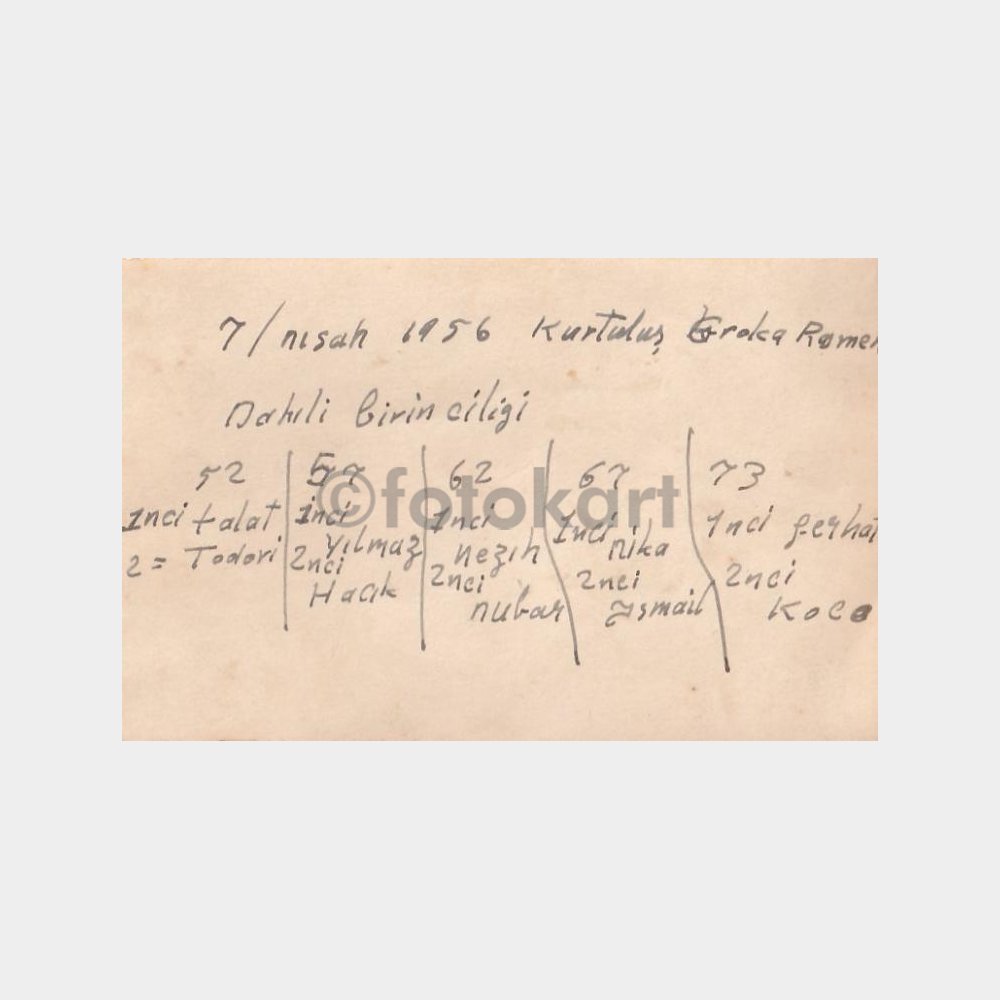 7/nisan 1956 Kurtuluş Groko Romen
Dahili birinciligi
52 57 62 67 73
1nci talat 1inci 1nci 1nci 1nci ferhat
2= Todori yılmaz nezih nika 2nci
2nci 2nci 2nci Koco
Hacik nubar Ismail
©fotokart